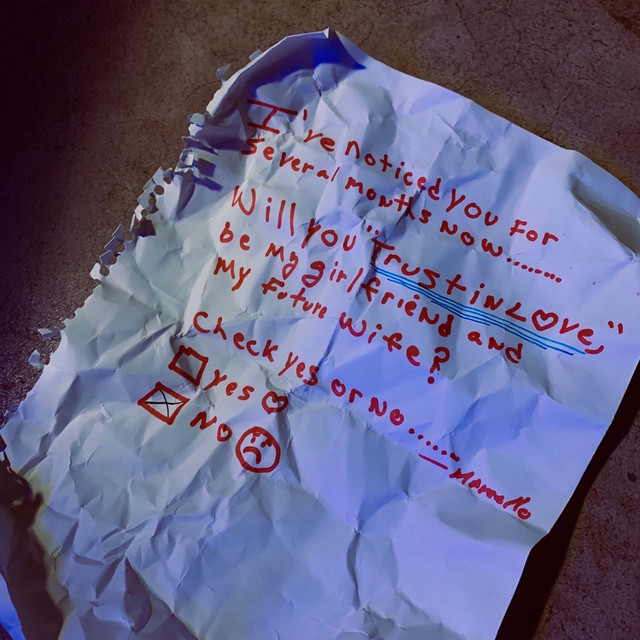 I've noticed you for
several months now........
Will you "Trust in Love,"
be my girlfriend and
my future wife?
Check yes or no......
yes
No